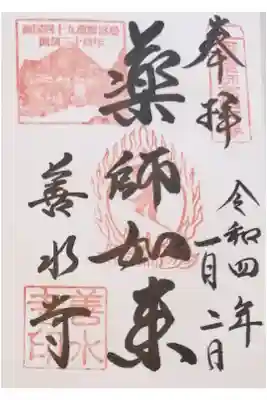 奉拝
令和四年
一月二日
薬師如来
善水寺
善水
寺印